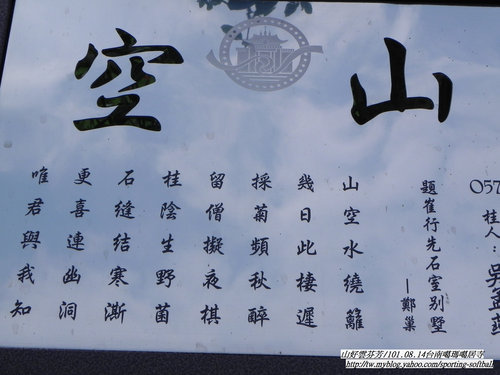 山空
057
桂人:
題崔行先石室別墅
—鄭巢
山空水繞籬
幾日此棲遲
採菊頻秋醉
留僧擬夜棋
桂陰生野菌
石縫結寒澌
更喜連幽洞
唯君與我知
山好雲芬芳/101.08.14台南噶瑪噶居寺
http://tw.myblog.yahoo.com/sporting-softbal